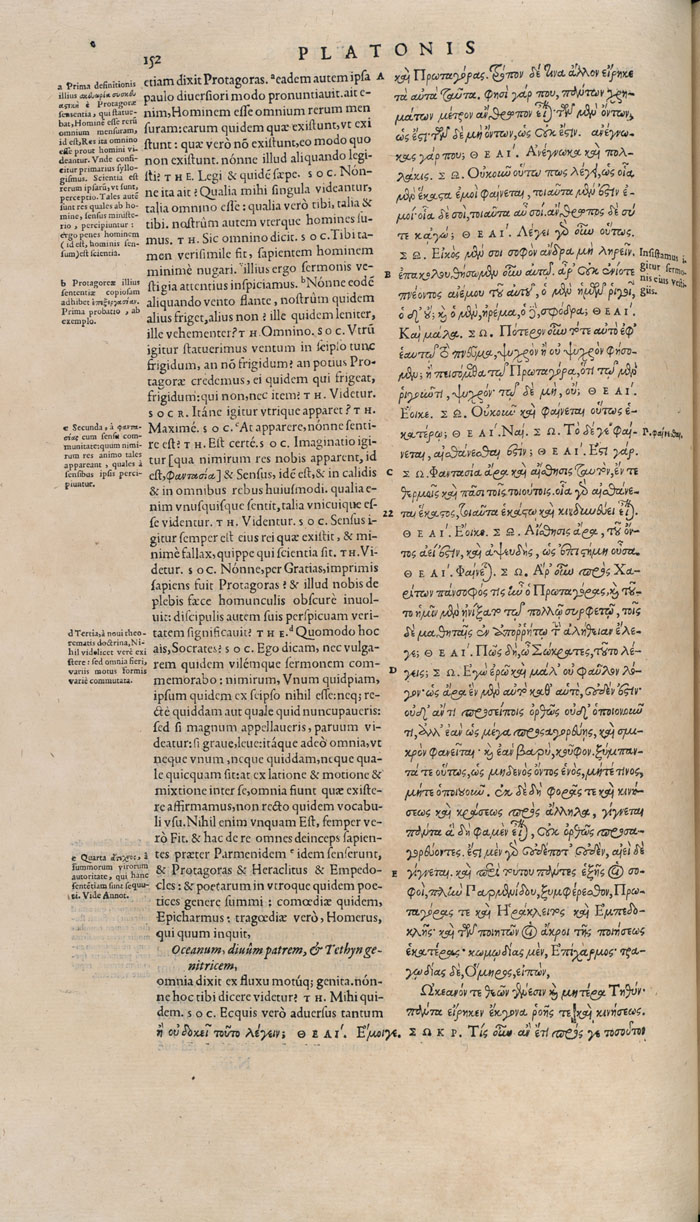 152
PLATONIS
a Prima definitionis
illius
è Protagoræ
sententia, qui statue-
bat, Hominē esse rerū
omnium mensuram,
id est, Res ita omnino
esse prout homini vi-
deantur. Vnde confi-
citur primarius syllo-
gismus. Scientia est
rerum ipsarū, vt sunt,
perceptio. Tales autē
sunt res quales ab ho-
mine, sensus ministe-
rio, percipiuntur:
ergo penes hominem
(id est, hominis sen-
sum) est scientia.
b Protagoreæ illius
sententiæ copiosam
adhibet
Prima probatio, ab
exemplo.
c Secunda, à φαντα-
σίας cum sensu com-
munitate: quum nimi-
rum res animo tales
appareant, quales à
sensibus ipsis perci-
piuntur.
d Tertia, à noui theo-
rematis doctrina, Ni-
hil videlicet verè exi
stere: sed omnia fieri,
variis motus formis
variè commutata.
e Quarta ἄτεχνος, à
summorum virorum
autoritate, qui hanc
sentētiam sint sequu-
ti. Vide Annot.
etiam dixit Protagoras. ᵃeadem autem ipsa
paulo diuersiori modo pronuntiauit. ait e-
nim, Hominem esse omnium rerum men
suram: earum quidem quæ existunt, vt exi
stunt: quæ verò nō existunt, eo modo quo
non existunt. nónne illud aliquando legi-
sti? THE. Legi & quidē sæpe. SOC. Nón-
ne ita ait? Qualia mihi singula videantur,
talia omnino esse: qualia verò tibi, talia &
tibi. nostrûm autem vterque homines su-
mus. TH. Sic omnino dicit. SOC. Tibi ta-
men verisimile fit, sapientem hominem
minimè nugari. ″illius ergo sermonis ve-
stigia attentius inspiciamus. ᵇNonne eodē
aliquando vento flante, nostrûm quidem
alius friget, alius non? ille quidem leniter,
ille vehementer? TH. Omnino. SOC. Vtrū
igitur statuerimus ventum in seipso tunc
frigidum, an nō frigidum? an potius Pro-
tagoræ credemus, ei quidem qui frigeat,
frigidum: qui non, nec item? TH. Videtur.
SOCR. Itáne igitur vtrique apparet? TH.
Maximè. SOC. ᶜAt apparere, nónne senti-
re est? TH. Est certè. SOC. Imaginatio igi-
tur [qua nimirum res nobis apparent, id
est, φαντασία] & Sensus, idē est, & in calidis
& in omnibus rebus huiusmodi. qualia e-
nim vnusquisque sentit, talia vnicuique es-
se videntur. TH. Videntur. SOC. Sensus i-
gitur semper est eius rei quæ existit, & mi-
nimè fallax, quippe qui scientia sit. TH. Vi-
detur. SOC. Nónne, per Gratias, imprimis
sapiens fuit Protagoras? & illud nobis de
plebis fæce homunculis obscurè inuol-
uit: discipulis autem suis perspicuam veri-
tatem significauit? THE. ᵈQuomodo hoc
ais, Socrates? SOC. Ego dicam, nec vulga-
rem quidem vilémque sermonem com-
memorabo: nimirum, Vnum quidpiam,
ipsum quidem ex seipso nihil esse: neq; re-
ctè quiddam aut quale quid nuncupaueris:
sed si magnum appellaueris, paruum vi-
deatur: si graue, leue: itáque adeò omnia, vt
neque vnum, neque quiddam, neque qua-
le quicquam sit: at ex latione & motione &
mixtione inter se, omnia fiunt quæ existe-
re affirmamus, non recto quidem vocabu-
li vsu. Nihil enim vnquam Est, semper ve-
rò Fit. & hac de re omnes deinceps sapien-
tes præter Parmenidem ᵉidem senserunt,
& Protagoras & Heraclitus & Empedo-
cles: & poetarum in vtroque quidem poe-
tices genere summi: comœdiæ quidem,
Epicharmus: tragœdiæ verò, Homerus,
qui quum inquit,
Oceanum, diuûm patrem, & Tethyn ge-
nitricem,
omnia dixit ex fluxu motúq; genita. nón-
ne hoc tibi dicere videtur? TH. Mihi qui-
dem. SOC. Ecquis verò aduersus tantum
A
B
C
22
D
E
καὶ Πρωταγόρας. τρόπον δέ τινα ἄλλον εἴρηκε
τὰ αὐτὰ ταῦτα. φησὶ γάρ που, πάντων χρη-
μάτων μέτρον ἄνθρωπον εἶναι· τῶν μὲν ὄντων,
ὡς ἔστι· τῶν δὲ μὴ ὄντων, ὡς οὐκ ἔστιν. ἀνέγνω-
κας γάρ που; ΘΕΑΙ. Ἀνέγνωκα καὶ πολ-
λάκις. ΣΩ. Οὐκοῦν οὕτω πως λέγει, ὡς οἷα
μὲν ἕκαστα ἐμοὶ φαίνεται, τοιαῦτα μὲν ἔστιν ἐ-
μοί· οἷα δὲ σοὶ, τοιαῦτα αὖ σοί. ἄνθρωπος δὲ σύ
τε κἀγώ; ΘΕΑΙ. Λέγει γὰρ οὖν οὕτως.
ΣΩ. Εἰκὸς μέν τοι σοφὸν ἄνδρα μὴ ληρεῖν.
ἐπακολουθήσωμεν οὖν αὐτῷ. ἆρ' οὐκ ἐνίοτε
πνέοντος ἀνέμου τοῦ αὐτοῦ, ὁ μὲν ἡμῶν ῥιγοῖ,
ὁ δ' οὔ; καὶ ὁ μὲν, ἠρέμα, ὁ δὲ, σφόδρα; ΘΕΑΙ.
Καὶ μάλα. ΣΩ. Πότερον οὖν τότε αὐτὸ ἐφ'
ἑαυτῷ τὸ πνεῦμα, ψυχρὸν ἢ οὐ ψυχρὸν φήσο-
μεν; ἢ πεισόμεθα τῷ Πρωταγόρᾳ, ὅτι τῷ μὲν
ῥιγοῦντι, ψυχρόν· τῷ δὲ μὴ, οὔ; ΘΕΑΙ.
Ἔοικε. ΣΩ. Οὐκοῦν καὶ φαίνεται οὕτως ἑ-
κατέρῳ; ΘΕΑΙ. Ναί. ΣΩ. Τὸ δέ γε φαί-
νεται, αἰσθάνεσθαί ἐστιν; ΘΕΑΙ. Ἔστι γάρ.
ΣΩ. Φαντασία ἄρα καὶ αἴσθησις ταυτὸν, ἔν τε
θερμοῖς καὶ πᾶσι τοῖς τοιούτοις. οἷα γὰρ αἰσθάνε-
ται ἕκαστος, τοιαῦτα ἑκάστῳ καὶ κινδυνεύει εἶναι.
ΘΕΑΙ. Ἔοικε. ΣΩ. Αἴσθησις ἄρα, τοῦ ὄν-
τος ἀεί ἐστιν, καὶ ἀψευδὴς, ὡς ἐπιστήμη οὖσα.
ΘΕΑΙ. Φαίνεται. ΣΩ. Ἆρ' οὖν πρὸς Χα-
ρίτων πάνσοφός τις ἦν ὁ Πρωταγόρας, καὶ τοῦ-
το ἡμῖν μὲν ᾐνίξατο τῷ πολλῷ συρφετῷ, τοῖς
δὲ μαθηταῖς ἐν ἀπορρήτῳ τὴν ἀλήθειαν ἔλε-
γε; ΘΕΑΙ. Πῶς δὴ, ὦ Σώκρατες, τοῦτο λέ-
γεις; ΣΩ. Ἐγὼ ἐρῶ καὶ μάλ' οὐ φαῦλον λό-
γον· ὡς ἄρα ἓν μὲν αὐτὸ καθ' αὑτὸ, οὐδέν ἐστιν·
οὐδ' ἄν τι προσείποις ὀρθῶς οὐδ' ὁποιονοῦν
τι, ἀλλ' ἐὰν ὡς μέγα προσαγορεύῃς, καὶ σμι-
κρὸν φανεῖται· καὶ ἐὰν βαρὺ, κοῦφον. ξύμπαν-
τά τε οὕτως, ὡς μηδενὸς ὄντος ἑνὸς, μήτε τινὸς,
μήτε ὁποιουοῦν. ἐκ δὲ δὴ φορᾶς τε καὶ κινή-
σεως καὶ κράσεως πρὸς ἄλληλα, γίγνεται
πάντα ἃ δή φαμεν εἶναι, οὐκ ὀρθῶς προσα-
γορεύοντες. ἔστι μὲν γὰρ οὐδέποτ' οὐδὲν, ἀεὶ δὲ
γίγνεται. καὶ περὶ τούτου πάντες ἑξῆς οἱ σο-
φοὶ, πλὴν Παρμενίδου, ξυμφέρεσθον, Πρω-
ταγόρας τε καὶ Ἡράκλειτος καὶ Ἐμπεδο-
κλῆς· καὶ τῶν ποιητῶν οἱ ἄκροι τῆς ποιήσεως
ἑκατέρας· κωμῳδίας μὲν, Ἐπίχαρμος· τρα-
γῳδίας δὲ, Ὅμηρος, εἰπὼν,
Ὠκεανόν τε θεῶν γένεσιν καὶ μητέρα Τηθύν·
πάντα εἴρηκεν ἔκγονα ῥοῆς τε καὶ κινήσεως.
ἢ οὐ δοκεῖ τοῦτο λέγειν; ΘΕΑΙ. Ἔμοιγε. ΣΩΚΡ. Τίς οὖν ἂν ἔτι πρός γε τοσοῦτον
Insistamus i-
gitur sermo-
nis eius vesti-
giis.